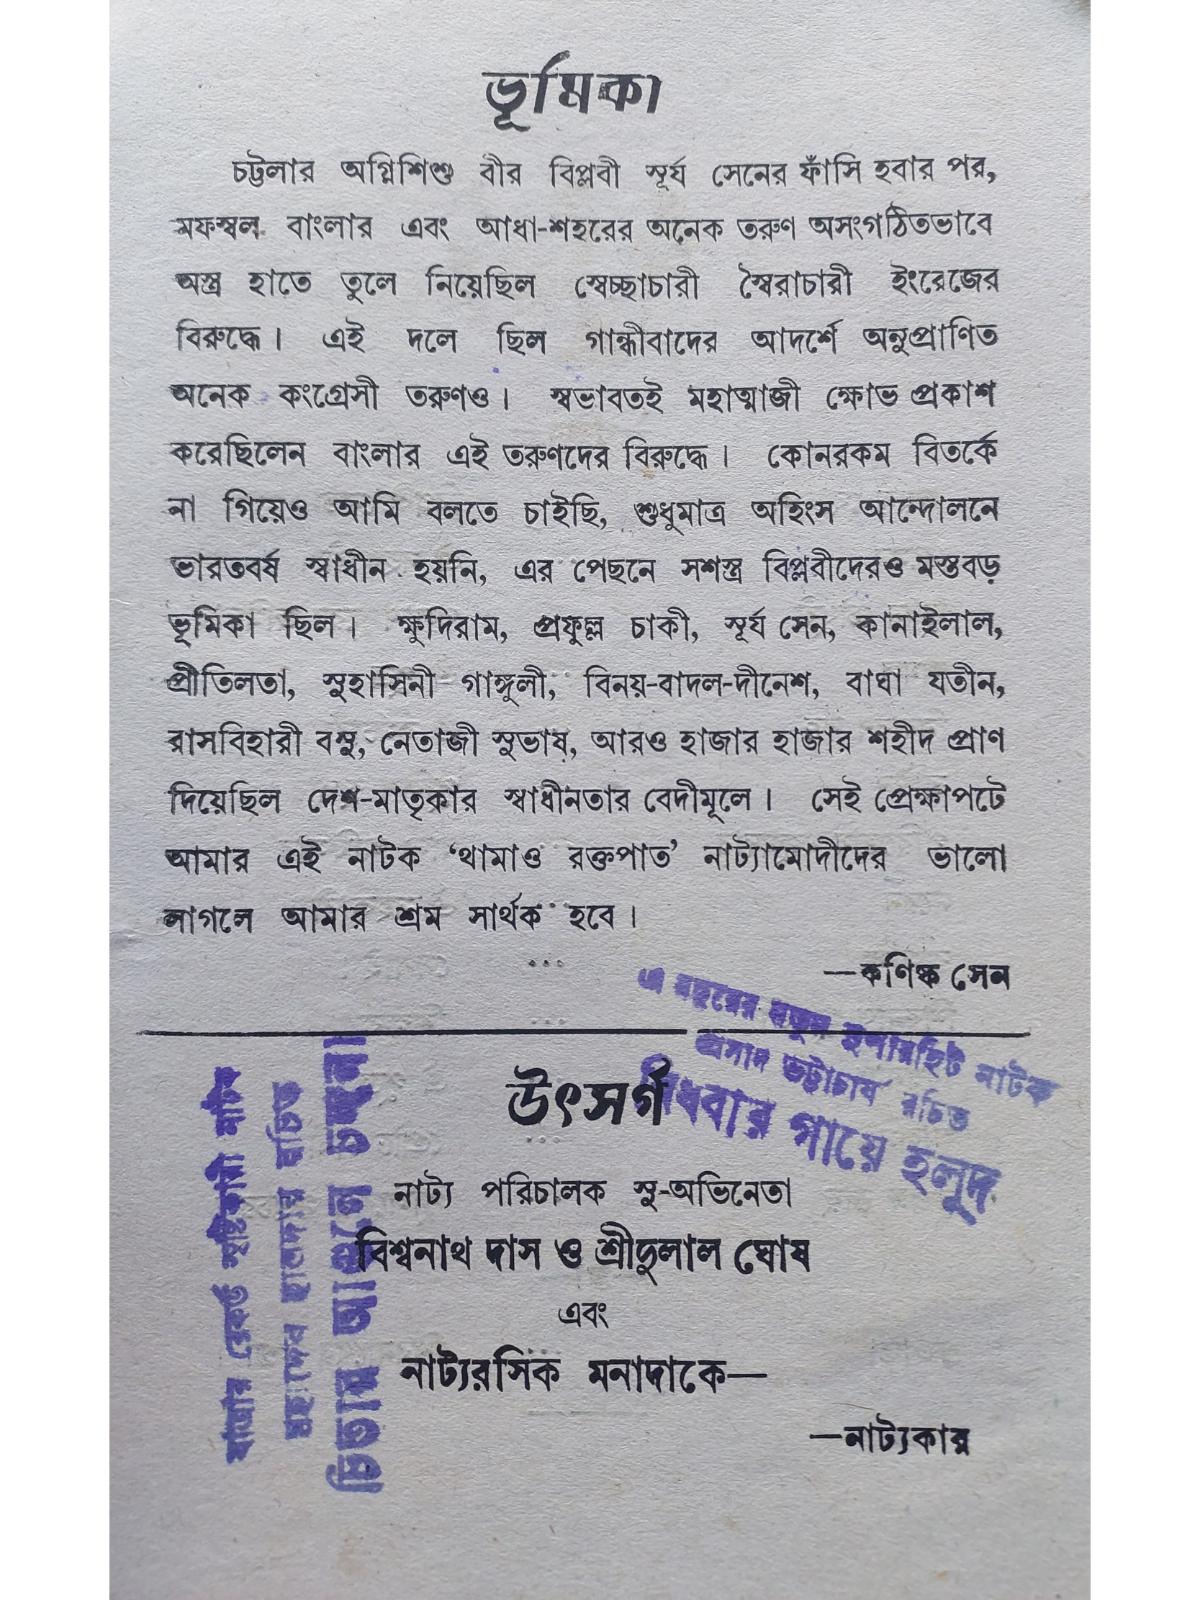 ভূমিকা
চট্টলার অগ্নিশিশু বীর বিপ্লবী সূর্য সেনের ফাঁসি হবার পর,
মফস্বল বাংলার এবং আধা-শহরের অনেক তরুণ অসংগঠিতভাবে
অস্ত্র হাতে তুলে নিয়েছিল স্বেচ্ছাচারী স্বৈরাচারী ইংরেজের
বিরুদ্ধে। এই দলে ছিল গান্ধীবাদের আদর্শে অনুপ্রাণিত
অনেক কংগ্রেসী তরুণও। স্বভাবতই মহাত্মাজী ক্ষোভ প্রকাশ
করেছিলেন বাংলার এই তরুণদের বিরুদ্ধে। কোনরকম বিতর্কে
না গিয়েও আমি বলতে চাইছি, শুধুমাত্র অহিংস আন্দোলনে
ভারতবর্ষ স্বাধীন হয়নি, এর পেছনে সশস্ত্র বিপ্লবীদেরও মস্তবড়
ভূমিকা ছিল। ক্ষুদিরাম, প্রফুল্ল চাকী, সূর্য সেন, কানাইলাল,
প্রীতিলতা, সুহাসিনী গাঙ্গুলী, বিনয়-বাদল-দীনেশ, বাঘা যতীন,
রাসবিহারী বসু, নেতাজী সুভাষ, আরও হাজার হাজার শহীদ প্রাণ
দিয়েছিল দেশ-মাতৃকার স্বাধীনতার বেদীমূলে। সেই প্রেক্ষাপটে
আমার এই নাটক ‘থামাও রক্তপাত’ নাট্যামোদীদের ভালো
লাগলে আমার শ্রম সার্থক হবে।
—কণিষ্ক সেন
এ বছরের নতুন সুপারহিট নাটক
প্রসাদ ভট্টাচার্য রচিত
বিধবার গায়ে হলুদ
উৎসর্গ
নাট্য পরিচালক সু-অভিনেতা
বিশ্বনাথ দাস ও শ্রীদুলাল ঘোষ
এবং
নাট্যরসিক মনাদাকে—
—নাট্যকার
যাত্রার রেকর্ড সৃষ্টিকারী নাটক
মহাদেব হালদার রচিত
চিতার আগুনে চন্দন